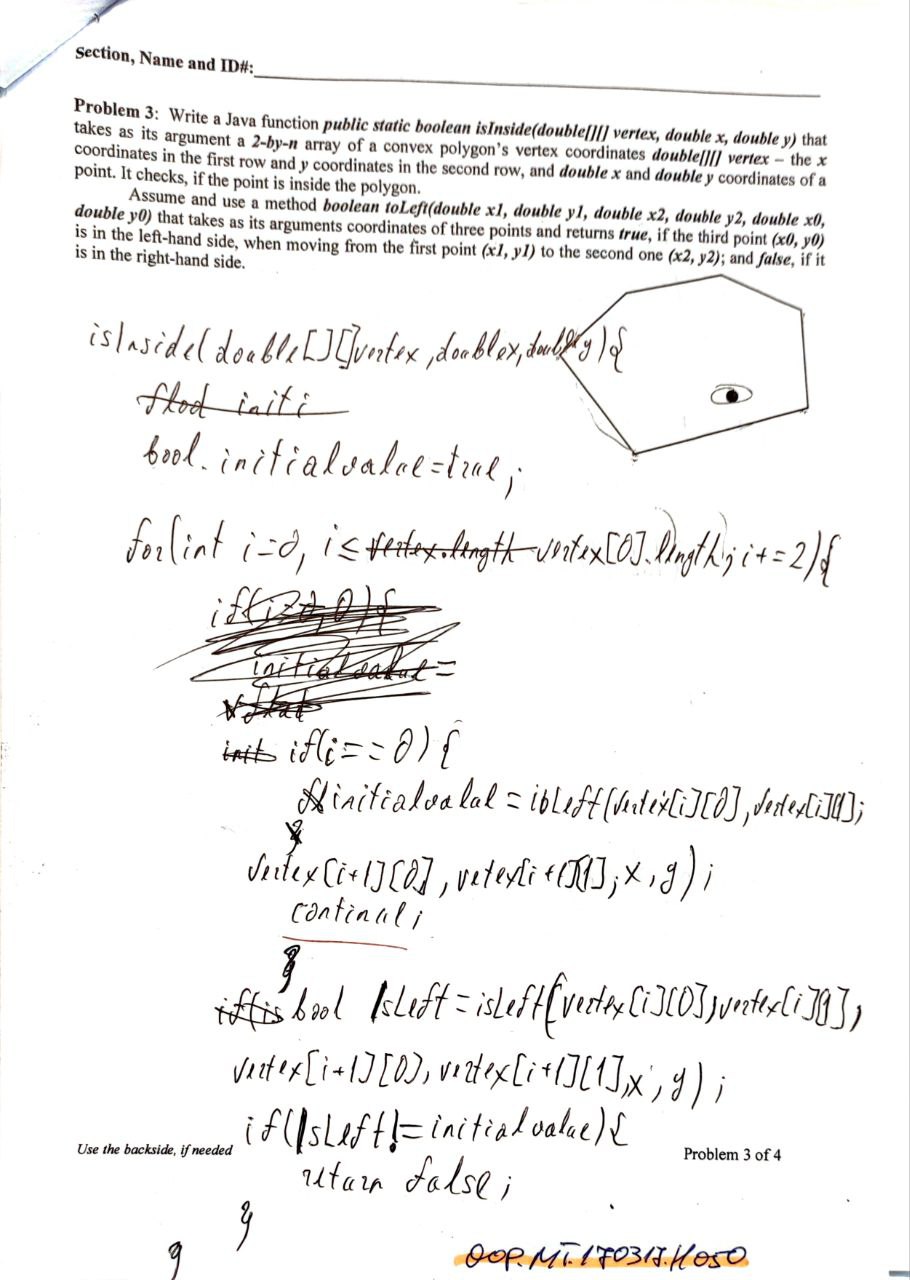 Section, Name and ID#:
Problem 3: Write a Java function public static boolean isInside(double[][] vertex, double x, double y) that
takes as its argument a 2-by-n array of a convex polygon's vertex coordinates double[][] vertex – the x
coordinates in the first row and y coordinates in the second row, and double x and double y coordinates of a
point. It checks, if the point is inside the polygon.
Assume and use a method boolean toLeft(double x1, double y1, double x2, double y2, double x0,
double y0) that takes as its arguments coordinates of three points and returns true, if the third point (x0, y0)
is in the left-hand side, when moving from the first point (x1, y1) to the second one (x2, y2); and false, if it
is in the right-hand side.
isInside(double[][]vertex,doublex,double y){
bool initialvalue=true;
for(int i=0, i≤ vertex.length vertex[0].length; i+=2){
initialvalue =
init if(i==0){
initialvalue = isLeft(vertex[i][0],vertex[i][1];
vertex[i+1][0], vetex[i+1][1];x,y);
continue;
}
if(is bool IsLeft=isLeft(vertex[i][0],vertex[i][1],
vertex[i+1][0],vertex[i+1][1],x,y);
if(IsLeft!=initialvalue){
Use the backside, if needed
Problem 3 of 4
return false;
}
}
OOP.MT.170317.H050